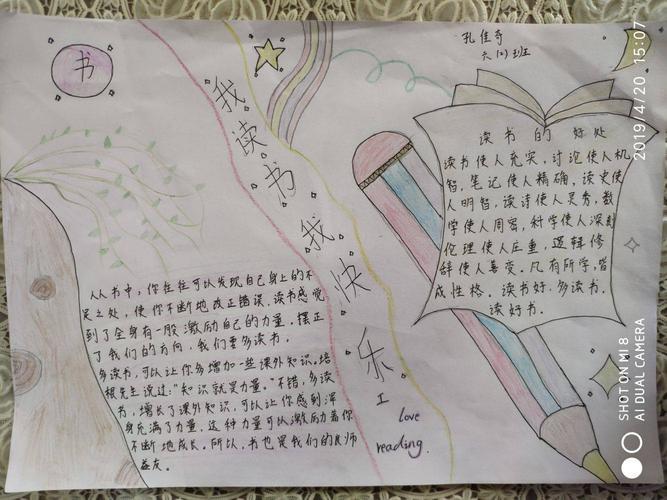 书
我读书我快乐
I
love
reading.
孔佳奇
六(2)班
读书的好处
读书使人充实,讨论使人机
智,笔记使人精确,读史使
人明智,读诗使人灵秀,数
学使人周密,科学使人深刻
伦理使人庄重,逻辑修
辞使人善变。凡有所学,皆
成性格。读书好,多读书,
读好书。
从书中,你往往可以发现自己身上的不
足之处,使你不断地改正错误,读书感觉
到了全身有一股激励自己的力量。摆正
了我们的方向,我们要多读书。
多读书,可以让你多增加一些课外知识。培
根先生说过:"知识就是力量。"不错,多读
书,增长了课外知识,可以让你感到浑
身充满了力量。这种力量可以激励着你
不断地成长。所以,书也是我们的良师
益友。
2019/4/20 15:07
SHOT ON MI 8
AI DUAL CAMERA